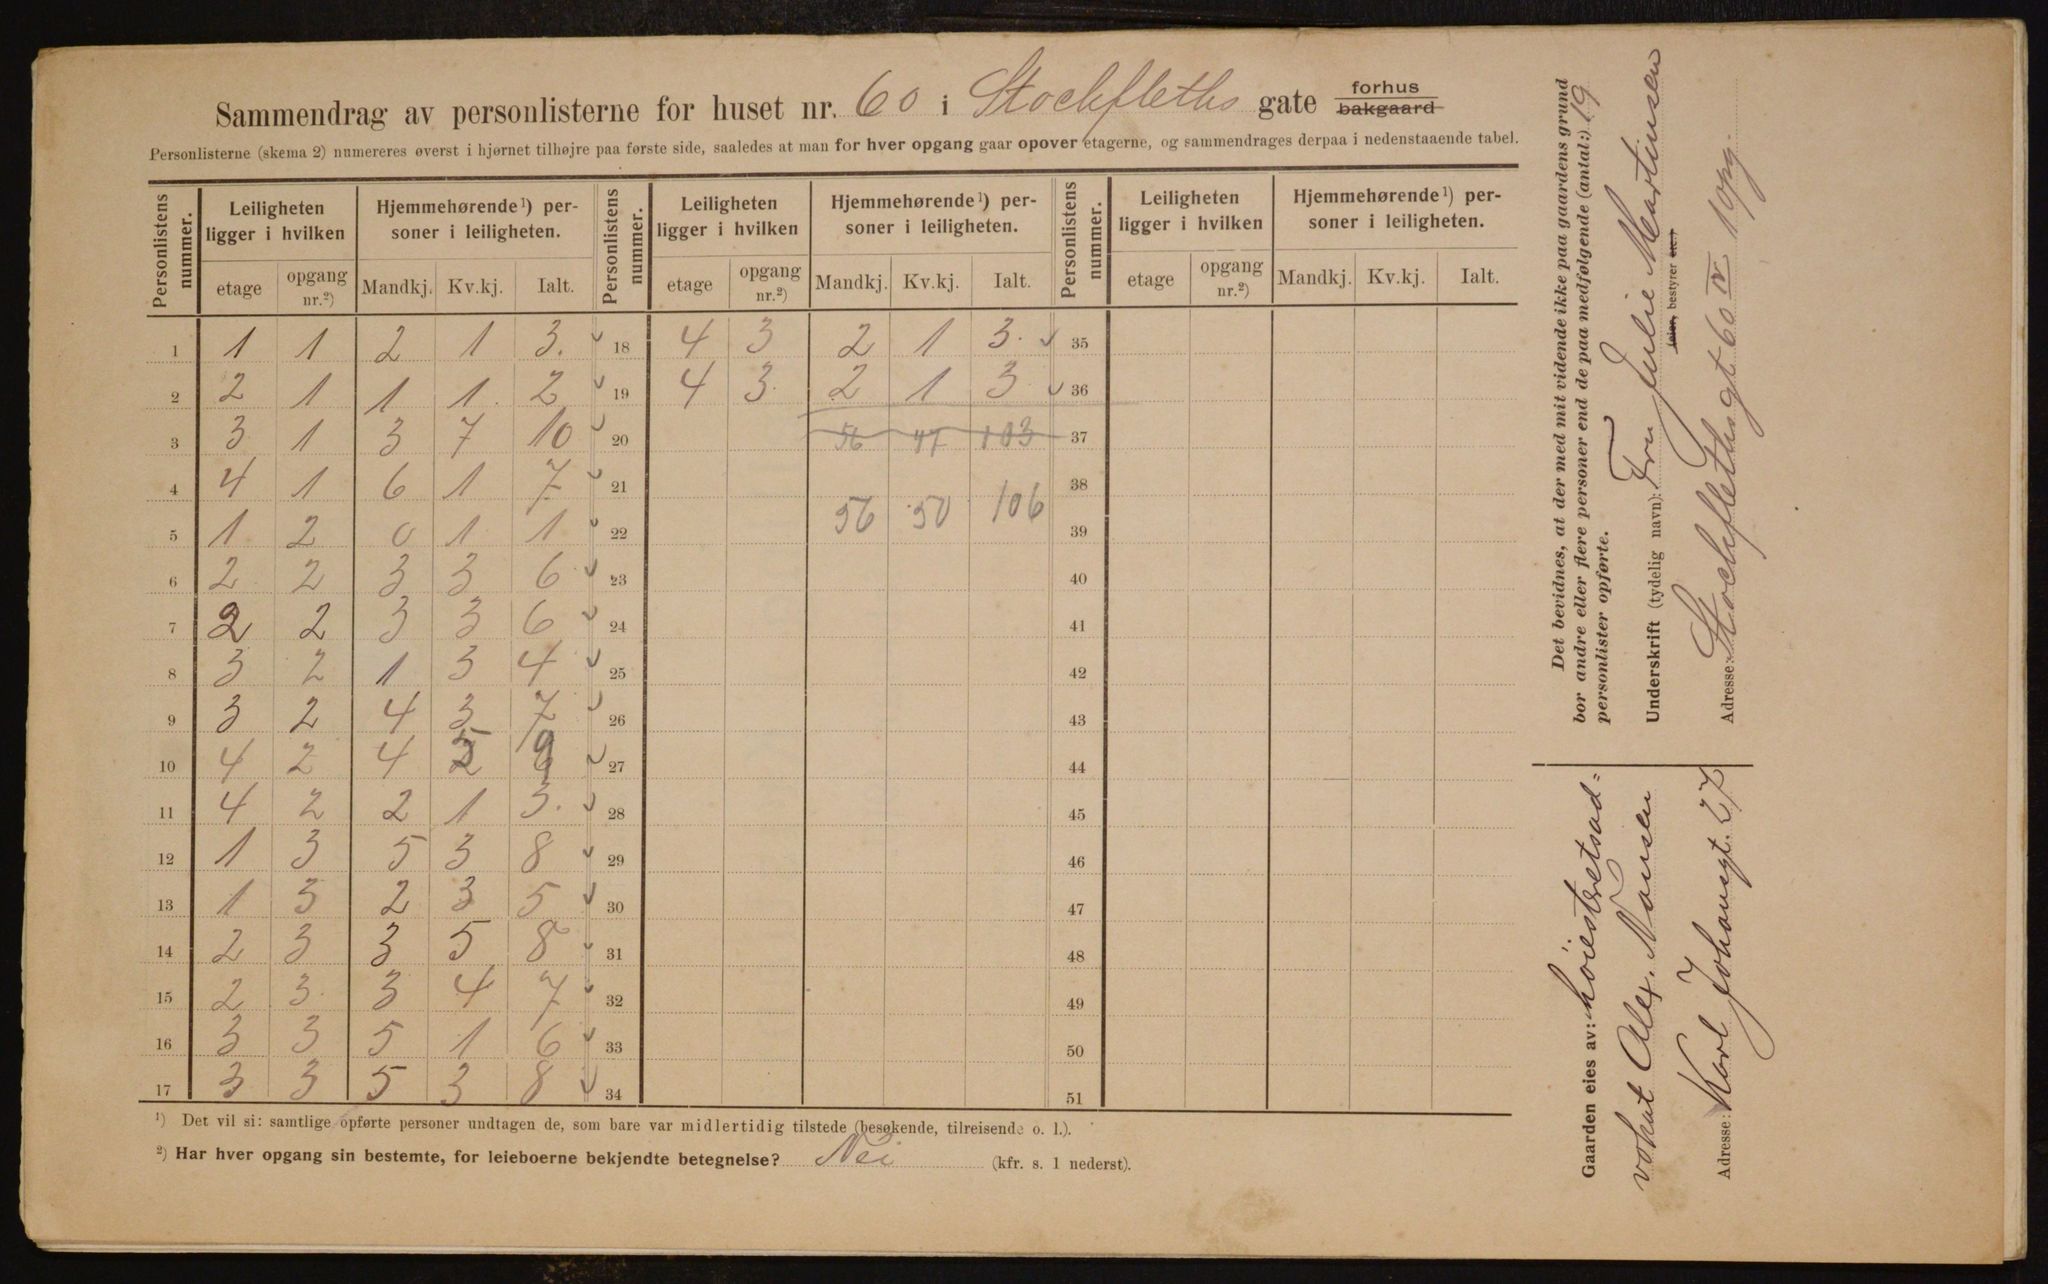 Sammendrag av personlisterne for huset nr. 60 i Stockfleths gate forhus bakgaard
Personlisterne (skema 2) numereres øverst i hjørnet tilhøjre paa første side, saaledes at man for hver opgang gaar opover etagerne, og sammendrages derpaa i nedenstaaende tabel.
Personlistens nummer. Leiligheten ligger i hvilken Hjemmehørende¹) personer i leiligheten. Personlistens nummer. Leiligheten ligger i hvilken Hjemmehørende¹) personer i leiligheten. Personlistens nummer. Leiligheten ligger i hvilken Hjemmehørende¹) personer i leiligheten.
etage opgang nr.²) Mandkj. Kv.kj. Ialt. etage opgang nr.²) Mandkj. Kv.kj. Ialt. etage opgang nr.²) Mandkj. Kv.kj. Ialt.
1 1 1 2 1 3. 18 4 3 2 1 3. 35
2 2 1 1 1 2 19 4 3 2 1 3 36
3 3 1 3 7 10 20 56 47 103 37
4 4 1 6 1 7 21 38
56 50 106
5 1 2 0 1 1 22 39
6 2 2 3 3 6 23 40
7 2 2 3 3 6 24 41
8 3 2 1 3 4 25 42
9 3 2 4 3 7 26 43
10 4 2 4 5 9 27 44
11 4 2 2 1 3. 28 45
12 1 3 5 3 8 29 46
13 1 3 2 3 5 30 47
14 2 3 3 5 8 31 48
15 2 3 3 4 7 32 49
16 3 3 5 1 6 33 50
17 3 3 5 3 8 34 51
¹) Det vil si: samtlige opførte personer undtagen de, som bare var midlertidig tilstede (besøkende, tilreisende o. l.).
²) Har hver opgang sin bestemte, for leieboerne bekjendte betegnelse? Nei (kfr. s. 1 nederst).
Det bevidnes, at der med mit vidende ikke paa gaardens grund
bor andre eller flere personer end de paa medfølgende (antal:) 19
personlister opførte.
Underskrift (tydelig navn): Fru Julie Martinsen
eier, bestyrer etc.)
Adresse: Stockflethsgt 60 IV 1 opg.
Gaarden eies av: høiesteretsad=
vokat Alex. Nansen
Adresse: Karl Johansgt. 27